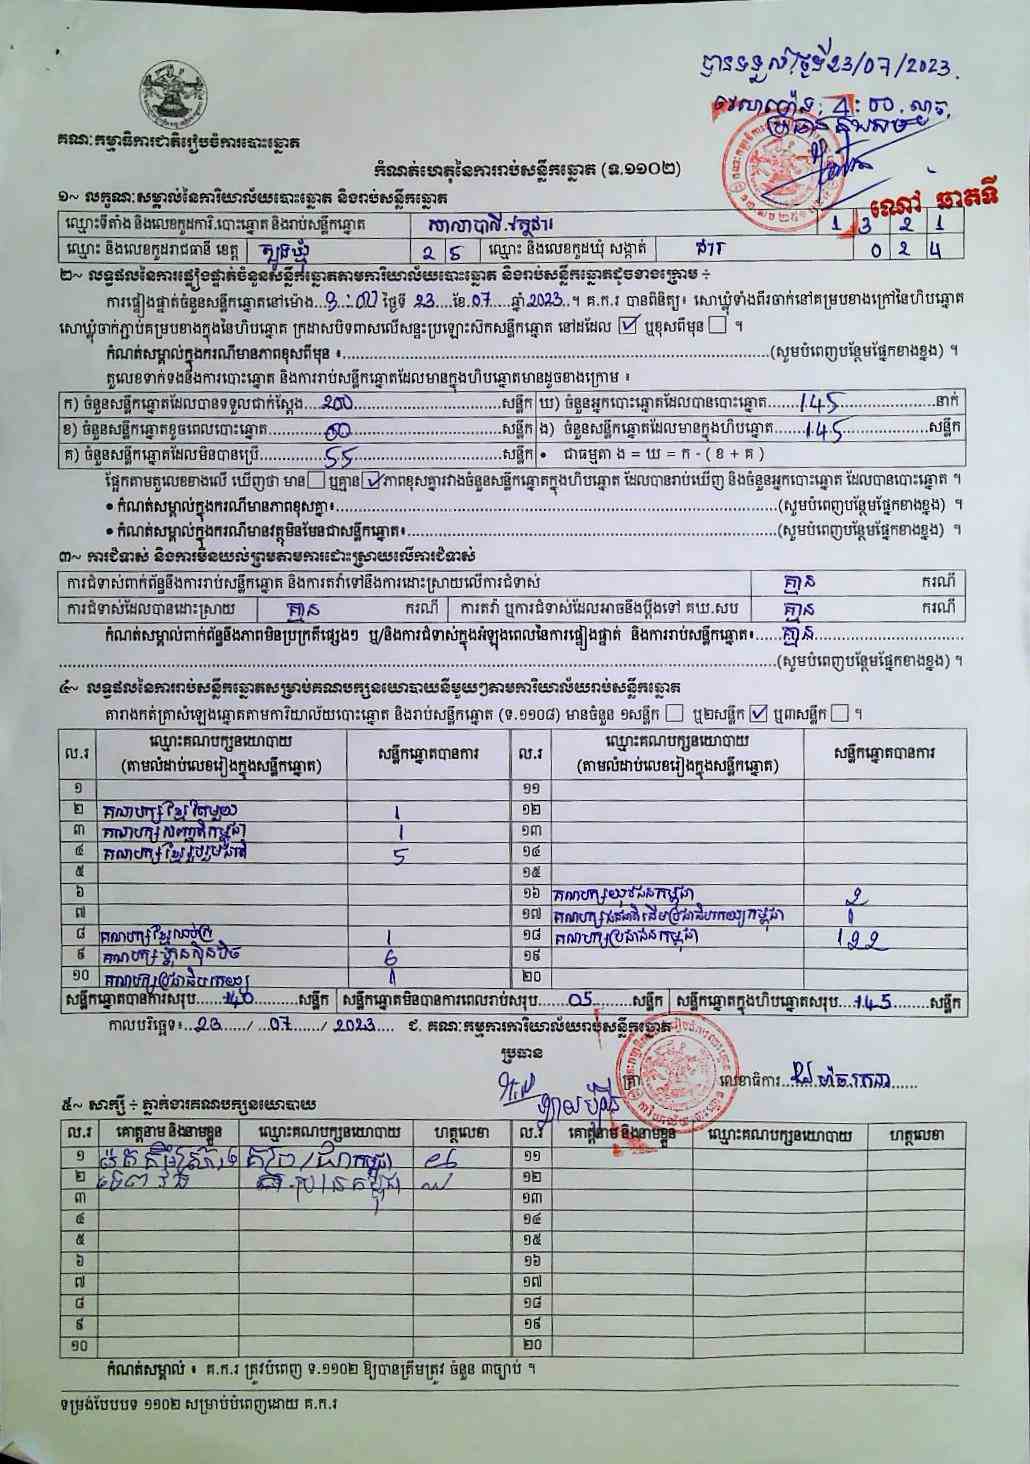 បានទទួលថ្ងៃទី23/07/2023.
វេលាម៉ោង: 4:00
គណៈកម្មាធិការជាតិរៀបចំការបោះឆ្នោត
កំណត់ហេតុនៃការរាប់សន្លឹកឆ្នោត (ទ.១១០២)
១~ លក្ខណៈសម្គាល់នៃការិយាល័យបោះឆ្នោត និងរាប់សន្លឹកឆ្នោត
ឈ្មោះទីតាំង និងលេខកូដការិ.បោះឆ្នោត និងរាប់សន្លឹកឆ្នោត សាលាបាលី 1 3 2 1
ឈ្មោះ និងលេខកូដរាជធានី ខេត្ត ត្បូងឃ្មុំ 2 5 ឈ្មោះ និងលេខកូដឃុំ សង្កាត់ ជារ 0 2 4
២~ លទ្ធផលនៃការផ្ទៀងផ្ទាត់ចំនួនសន្លឹកឆ្នោតតាមការិយាល័យបោះឆ្នោត និងរាប់សន្លឹកឆ្នោតដូចខាងក្រោម ÷
ការផ្ទៀងផ្ទាត់ចំនួនសន្លឹកឆ្នោតនៅម៉ោង ថ្ងៃទី 23 ខែ 07 ឆ្នាំ 2023 ។ គ.ក.រ បានពិនិត្យ៖ សោឃ្លុំទាំងពីរចាក់នៅគម្របខាងក្រៅនៃហិបឆ្នោត
សោឃ្លុំចាក់ភ្ជាប់គម្របខាងក្នុងនៃហិបឆ្នោត ក្រដាសបិទពាសលើសន្ទះប្រឡោះស៊កសន្លឹកឆ្នោត នៅដដែល ☑ ឬខុសពីមុន ☐ ។
កំណត់សម្គាល់ក្នុងករណីមានភាពខុសពីមុន ៖ (សូមបំពេញបន្ថែមផ្នែកខាងខ្នង) ។
តួលេខទាក់ទងនឹងការបោះឆ្នោត និងការរាប់សន្លឹកឆ្នោតដែលមានក្នុងហិបឆ្នោតមានដូចខាងក្រោម ៖
ក) ចំនួនសន្លឹកឆ្នោតដែលបានទទួលជាក់ស្តែង 200 សន្លឹក ឃ) ចំនួនអ្នកបោះឆ្នោតដែលបានបោះឆ្នោត 145 នាក់
ខ) ចំនួនសន្លឹកឆ្នោតខូចពេលបោះឆ្នោត 00 សន្លឹក ង) ចំនួនសន្លឹកឆ្នោតដែលមានក្នុងហិបឆ្នោត 145 សន្លឹក
គ) ចំនួនសន្លឹកឆ្នោតដែលមិនបានប្រើ 55 សន្លឹក • ជាធម្មតា ង = ឃ = ក - ( ខ + គ )
ផ្អែកតាមតួលេខខាងលើ ឃើញថា មាន ☐ ឬគ្មាន ☑ ភាពខុសគ្នារវាងចំនួនសន្លឹកឆ្នោតក្នុងហិបឆ្នោត ដែលបានរាប់ឃើញ និងចំនួនអ្នកបោះឆ្នោត ដែលបានបោះឆ្នោត ។
• កំណត់សម្គាល់ក្នុងករណីមានភាពខុសគ្នា៖ (សូមបំពេញបន្ថែមផ្នែកខាងខ្នង) ។
• កំណត់សម្គាល់ក្នុងករណីមានវត្ថុមិនមែនជាសន្លឹកឆ្នោត៖ (សូមបំពេញបន្ថែមផ្នែកខាងខ្នង) ។
៣~ ការជំទាស់ និងការមិនយល់ព្រមតាមការដោះស្រាយលើការជំទាស់
ការជំទាស់ពាក់ព័ន្ធនឹងការរាប់សន្លឹកឆ្នោត និងការតវ៉ាទៅនឹងការដោះស្រាយលើការជំទាស់ គ្មាន ករណី
ការជំទាស់ដែលបានដោះស្រាយ គ្មាន ករណី ការតវ៉ា ឬការជំទាស់ដែលអាចនឹងប្តឹងទៅ គឃ.សប គ្មាន ករណី
កំណត់សម្គាល់ពាក់ព័ន្ធនឹងភាពមិនប្រក្រតីផ្សេងៗ ឬ/និងការជំទាស់ក្នុងអំឡុងពេលនៃការផ្ទៀងផ្ទាត់ និងការរាប់សន្លឹកឆ្នោត៖ គ្មាន
(សូមបំពេញបន្ថែមផ្នែកខាងខ្នង) ។
៤~ លទ្ធផលនៃការរាប់សន្លឹកឆ្នោតសម្រាប់គណបក្សនយោបាយនីមួយៗតាមការិយាល័យរាប់សន្លឹកឆ្នោត
តារាងកត់ត្រាសំឡេងឆ្នោតតាមការិយាល័យបោះឆ្នោត និងរាប់សន្លឹកឆ្នោត (ទ.១១០៨) មានចំនួន ១សន្លឹក ☐ ឬ២សន្លឹក ☑ ឬ៣សន្លឹក ☐ ។
ល.រ ឈ្មោះគណបក្សនយោបាយ (តាមលំដាប់លេខរៀងក្នុងសន្លឹកឆ្នោត) សន្លឹកឆ្នោតបានការ ល.រ ឈ្មោះគណបក្សនយោបាយ (តាមលំដាប់លេខរៀងក្នុងសន្លឹកឆ្នោត) សន្លឹកឆ្នោតបានការ
១ ១១
២ គណបក្សខ្មែរតែមួយ 1 ១២
៣ គណបក្សសញ្ជាតិកម្ពុជា 1 ១៣
៤ គណបក្សខ្មែររួបរួមជាតិ 5 ១៤
៥ ១៥
៦ ១៦ គណបក្សយុវជនកម្ពុជា 2
៧ ១៧
៨ គណបក្សខ្មែរឈប់ក្រ 1 ១៨ គណបក្សប្រជាជនកម្ពុជា 122
៩ គណបក្សហ្វ៊ុនស៊ិនប៉ិច 6 ១៩
១០ គណបក្សប្រជាធិបតេយ្យ ២០
សន្លឹកឆ្នោតបានការសរុប 140 សន្លឹក សន្លឹកឆ្នោតមិនបានការពេលរាប់សរុប 05 សន្លឹក សន្លឹកឆ្នោតក្នុងហិបឆ្នោតសរុប 145 សន្លឹក
កាលបរិច្ឆេទ៖ 23 / 07 / 2023 ជ. គណៈកម្មការការិយាល័យរាប់សន្លឹកឆ្នោត
ប្រធាន
ត្រា លេខាធិការ
៥~ សាក្សី ÷ ភ្នាក់ងារគណបក្សនយោបាយ
ល.រ គោត្តនាម និងនាមខ្លួន ឈ្មោះគណបក្សនយោបាយ ហត្ថលេខា ល.រ គោត្តនាម និងនាមខ្លួន ឈ្មោះគណបក្សនយោបាយ ហត្ថលេខា
១ ១១
២ ១២
៣ ១៣
៤ ១៤
៥ ១៥
៦ ១៦
៧ ១៧
៨ ១៨
៩ ១៩
១០ ២០
កំណត់សម្គាល់ ៖ គ.ក.រ ត្រូវបំពេញ ទ.១១០២ ឱ្យបានត្រឹមត្រូវ ចំនួន ៣ច្បាប់ ។
ទម្រង់បែបបទ ១១០២ សម្រាប់បំពេញដោយ គ.ក.រ